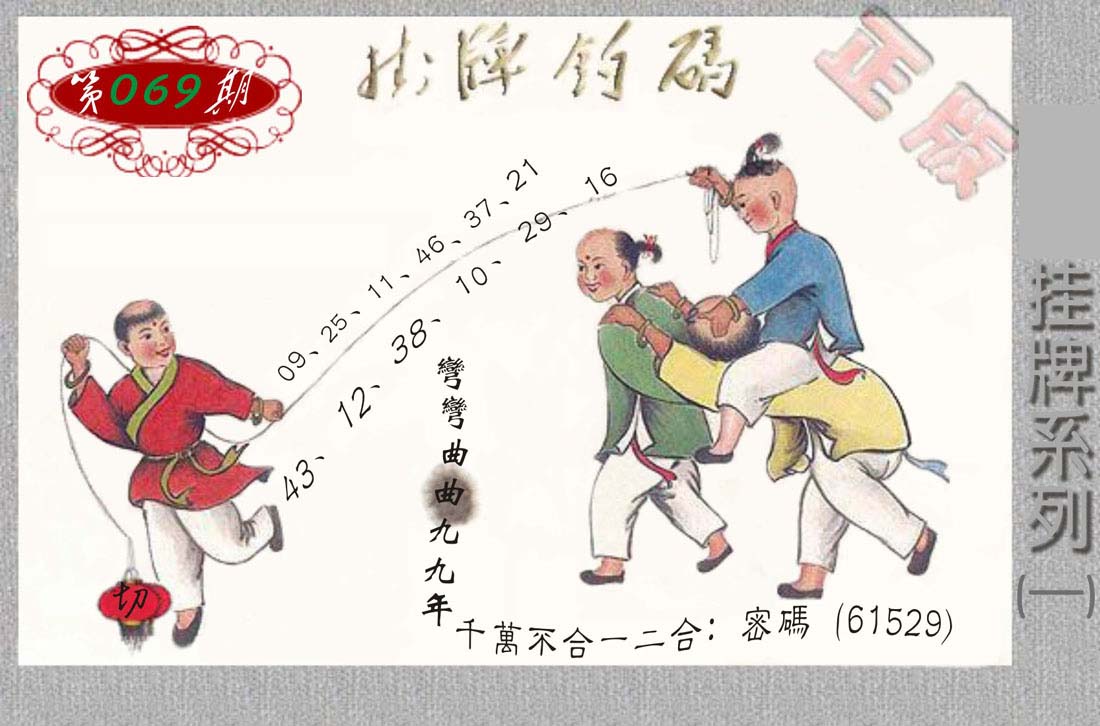 第069期
挂牌钓碼
正版
09、25、11、46、37、21
43、12、38、10、29、16
彎彎曲曲九九年
切
千萬不合一二合：密碼 (61529)
挂牌系列(一)